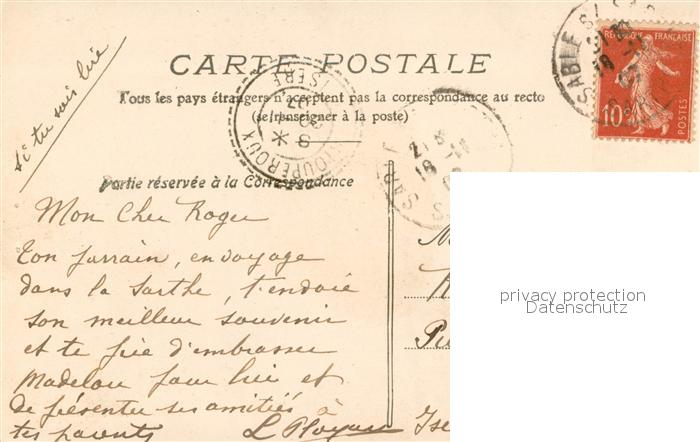 CARTE POSTALE
Tous les pays étrangers n'acceptent pas la correspondance au recto
(se renseigner à la poste)
si tu sais lire
Partie réservée à la Correspondance
Mon Cher Roger
Ton parrain, en voyage
dans la Sarthe, t'envoie
son meilleur souvenir
et te prie d'embrasser
Madelou pour lui et
de présenter ses amitiés à
tes parents
REPUBLIQUE FRANÇAISE
10
POSTES
SABLE S/ SAR
SARTHE
ISERE
privacy protection
Datenschutz